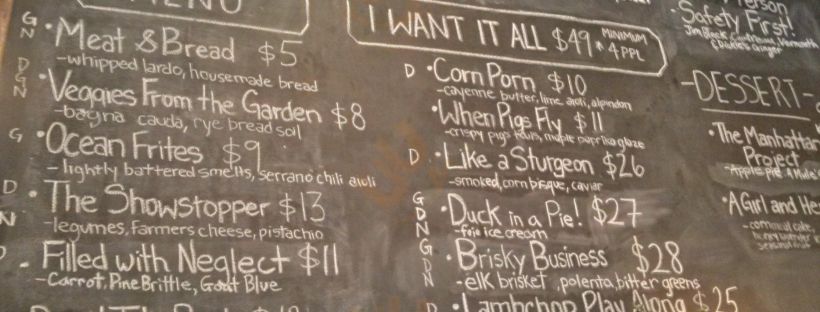 MENU
G
N
• Meat & Bread $5
- whipped lardo, housemade bread
D
G
N
• Veggies From the Garden $8
- bagna cauda, rye bread soil
G
• Ocean Frites $9
- lightly battered smelts, serrano chili aioli
D
N
• The Showstopper $13
- legumes, farmers cheese, pistachio
D
- Filled with Neglect $11
- Carrot, Pine Brittle, Goat Blue
I WANT IT ALL $49 MINIMUM
4 PPL
D
• Corn Porn $10
- cayenne butter, lime aioli,
• When Pigs Fly $11
- crispy pigs tails, maple paprika glaze
D
• Like a Sturgeon $26
- smoked, corn bisque, caviar
G
D
N
• Duck in a Pie! $27
- foie ice cream
G
D
N
• Brisky Business $28
- elk brisket, polenta, bitter greens
D
• Lambchop Play Along $25
Person
• Safety First!
Jim Beam, Cointreau, Vermouth
ginger
- DESSERT -
• The Manhattan
Project
- Apple Pie
• A Girl and He
cake,